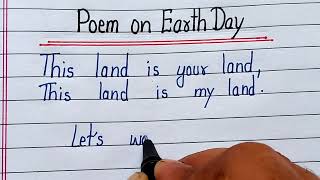 Poem on Earth Day
This land is your land,
This land is my land.
Let's